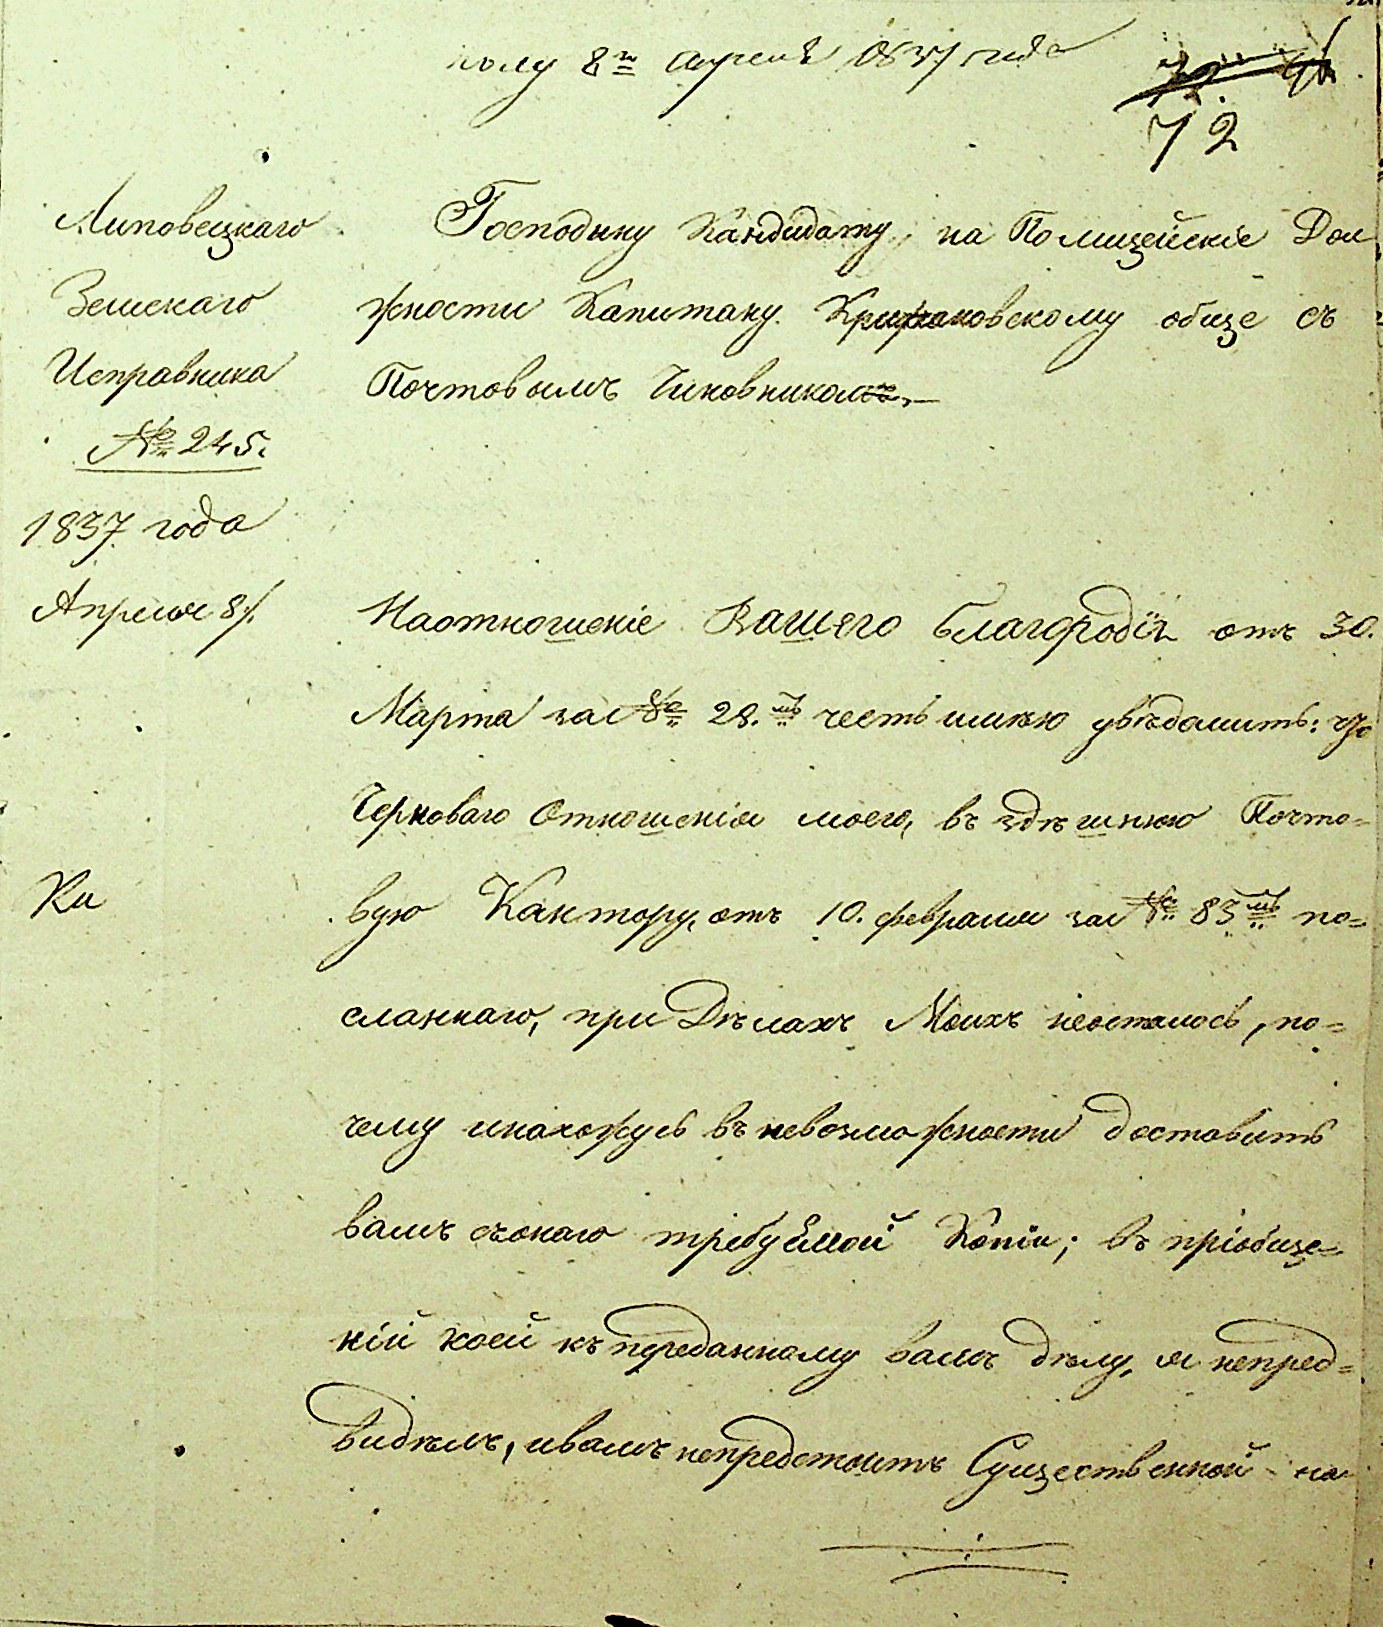 полу 8го апреля 1837 года
72
Липовецкаго
Земскаго
Исправника
№ 245.
1837 года
Апреля 8/.
Ки
Господину Кандидату, на Полицейскіе Дол
жности Капитану Крижановскому обще съ
Почтовымъ Чиновникомъ,—
Наотношеніе Вашего благородія отъ 30.
Марта за № 28.мъ честь имѣю увѣдомить: что
Черноваго Отношенія моего, въ здѣшнюю Почто=
вую Кантору, отъ 10. февраля за № 83мъ по=
сланнаго, при Дѣлахъ Моихъ неосталось, по=
чему инахожусь въ невозможности доставить
вамъ съонаго требуемой Копіи; въ пріобще=
ній коей къ переданному вамъ дѣлу, я непред=
видѣлъ, ивамъ непредстоитъ Существенной на